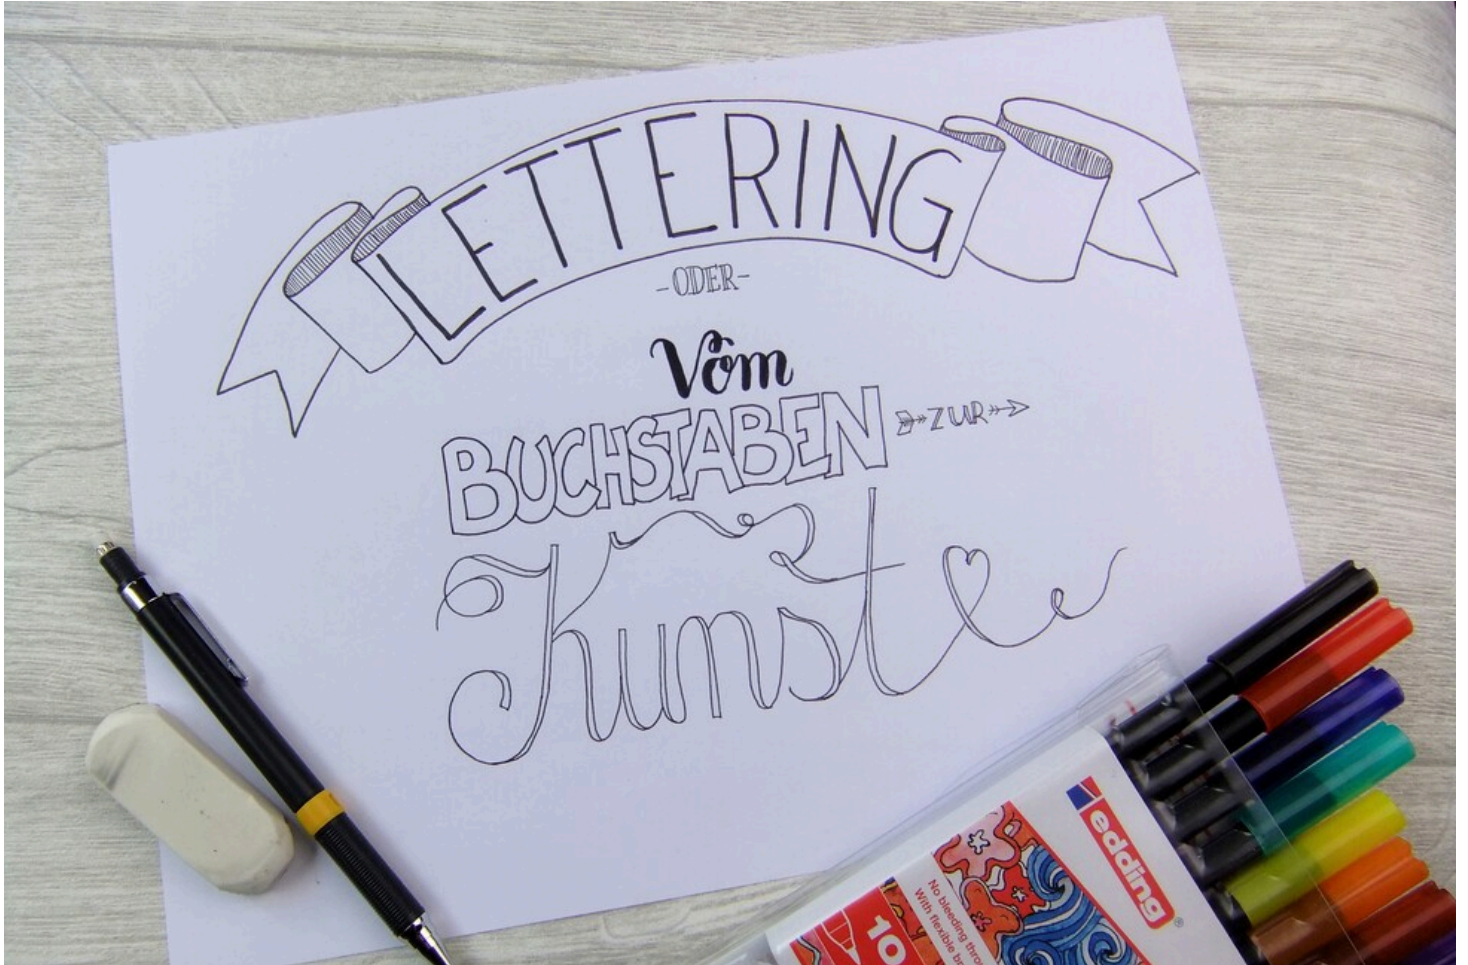 LETTERING
-ODER-
Vom
BUCHSTABEN ZUR
Kunst
edding®
No bleeding thro
With flexible b
10